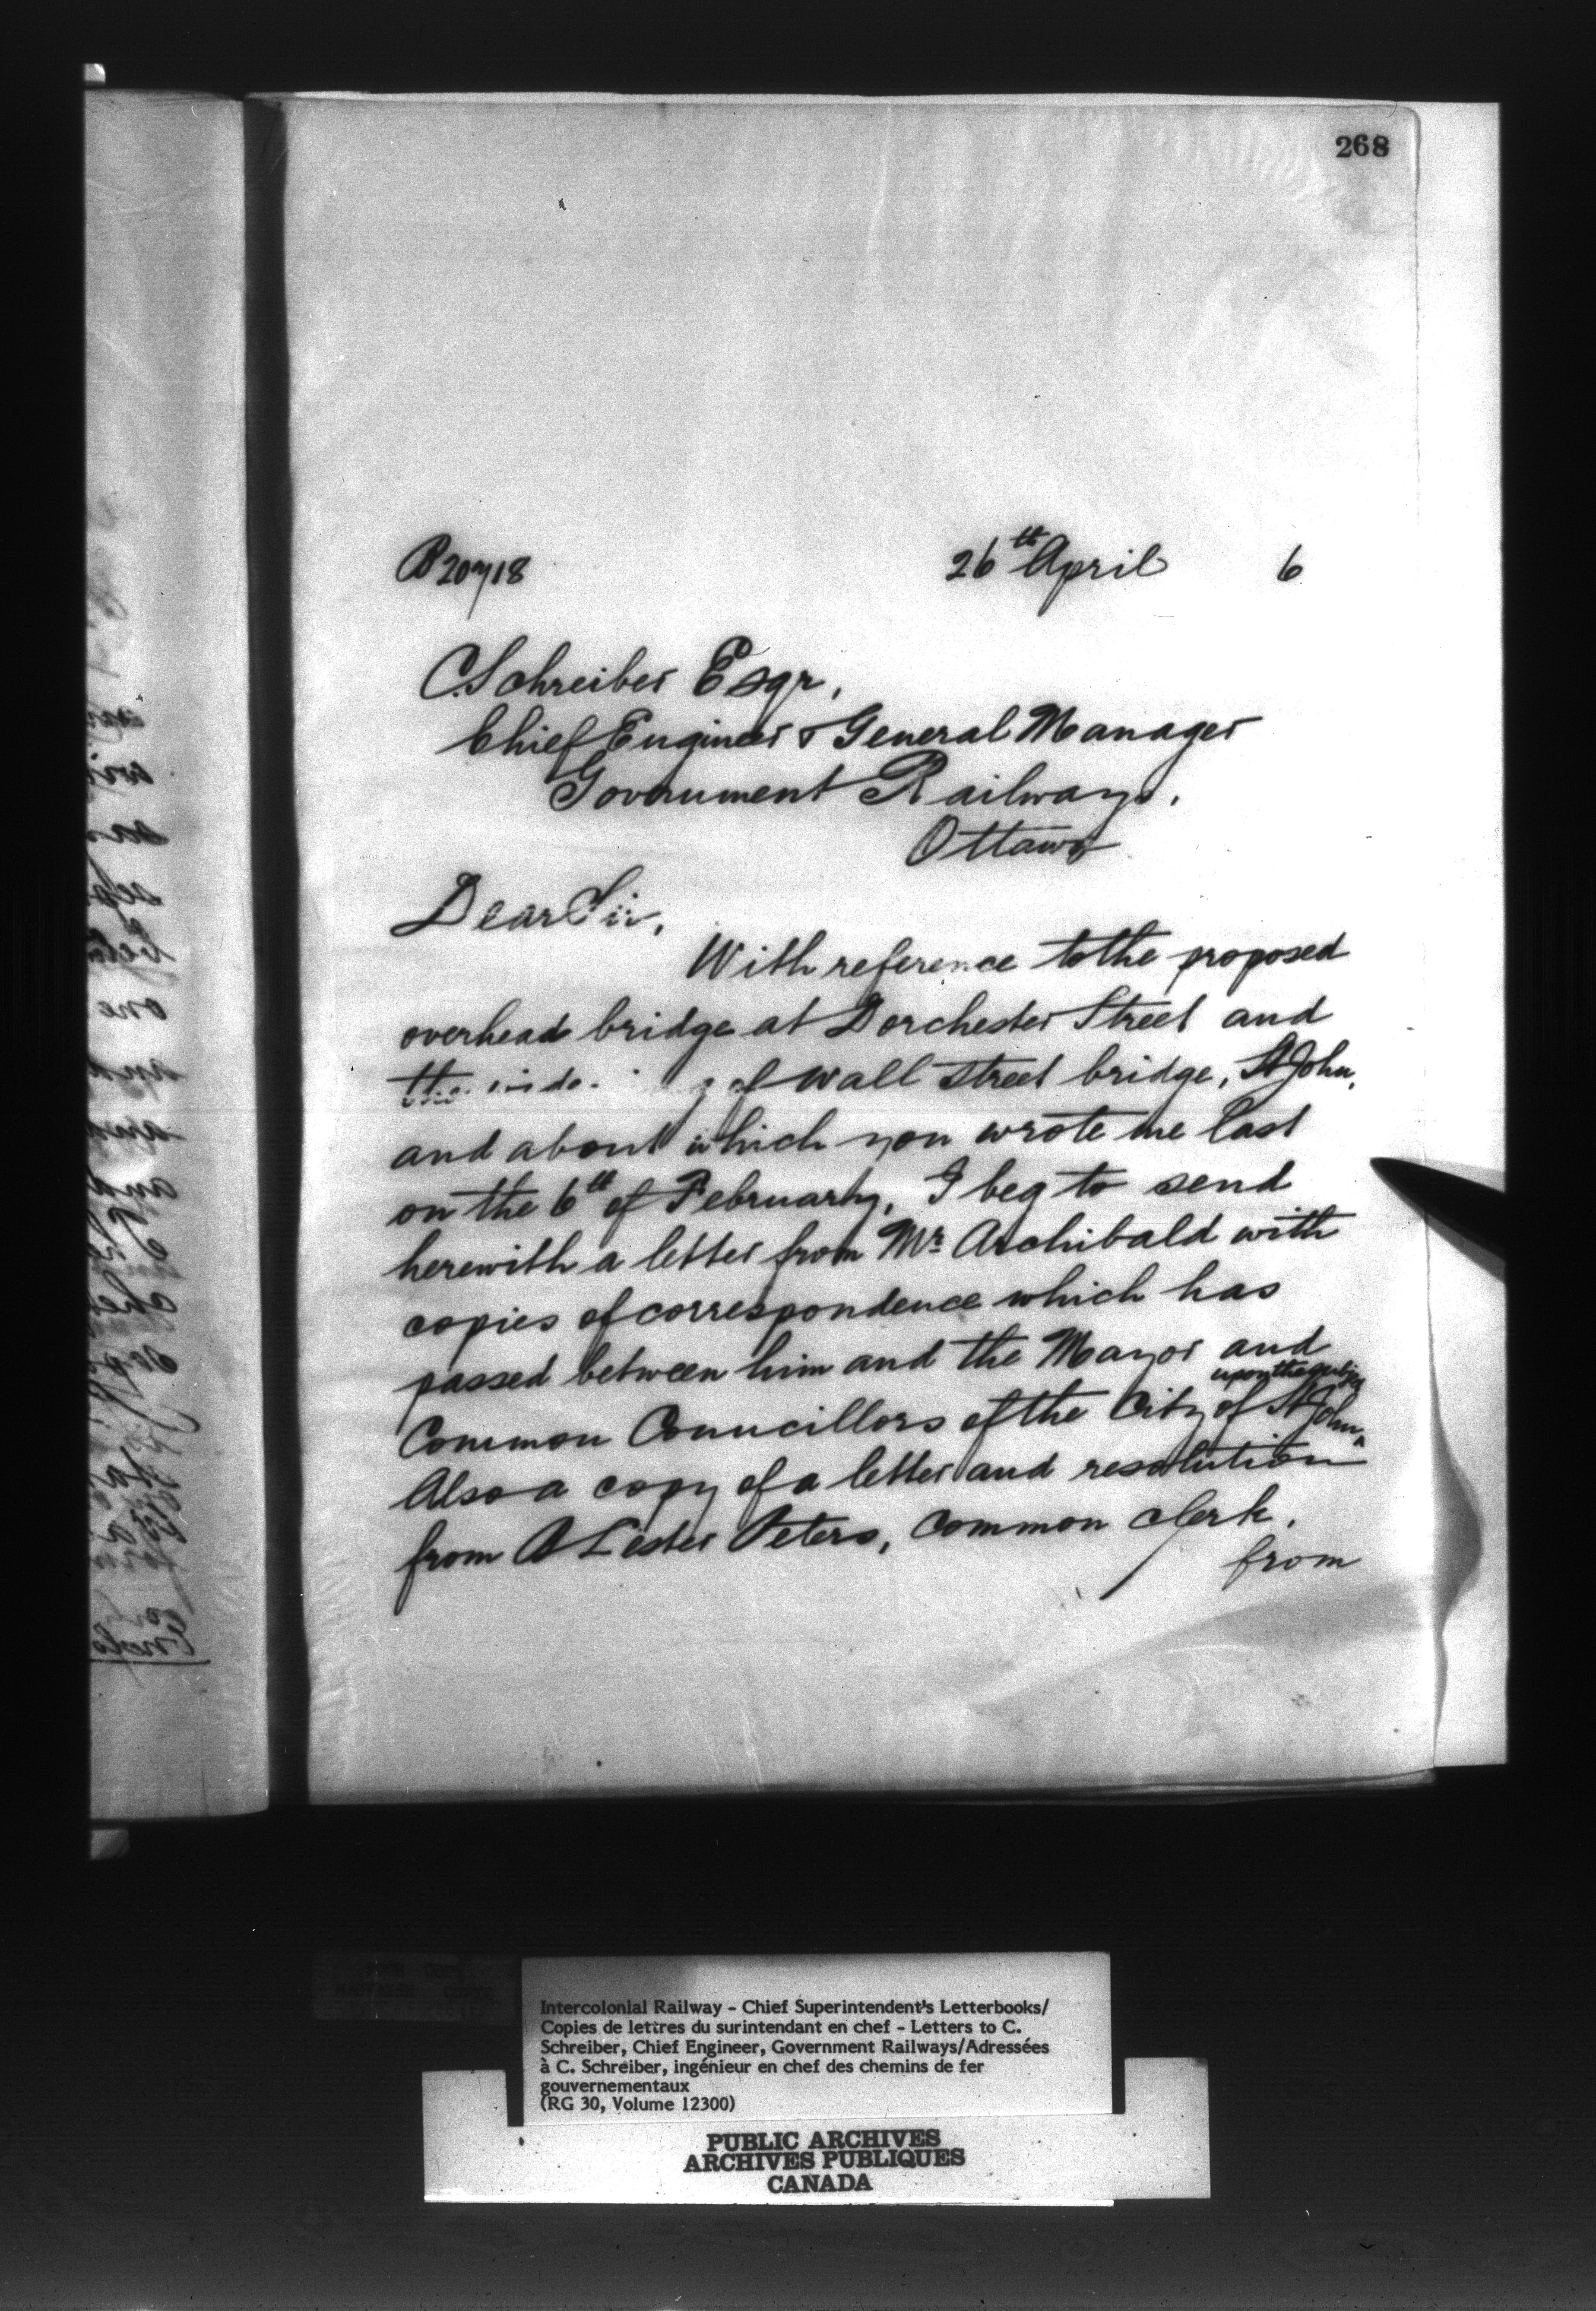 268
26th April 6
C. Schreiber Esqr,
Chief Engineer & General Manager
Government Railways,
Ottawa
Dear Sir,
With reference to the proposed
overhead bridge at Dorchester Street and
the of Wall Street bridge, St John,
and about which you wrote me last
on the 6th of February, I beg to send
herewith a letter from Mr Archibald with
copies of correspondence which has
passed between him and the Mayor and
upon the subject
Common Councillors of the City of St John,
Also a copy of a letter and resolution
from A Lester Peters, Common Clerk,
from
Intercolonial Railway - Chief Superintendent's Letterbooks/
Copies de lettres du surintendant en chef - Letters to C.
Schreiber, Chief Engineer, Government Railways/Adressées
à C. Schreiber, ingénieur en chef des chemins de fer
gouvernementaux
(RG 30, Volume 12300)
PUBLIC ARCHIVES
ARCHIVES PUBLIQUES
CANADA